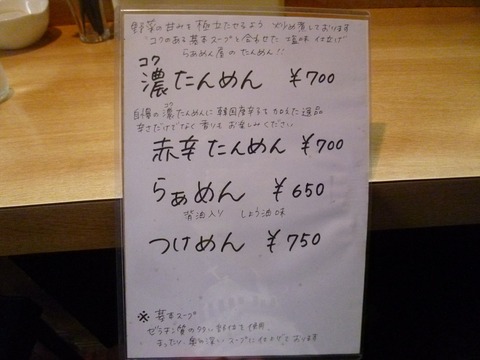 野菜の甘みを極立たせるよう 炒め煮しております
コクのある基本スープと合わせた 塩味 仕立て
らぁめん屋のたんめん!!
コク
濃たんめん ¥700
コク
自慢の濃たんめんに韓国産辛子を加えた逸品
辛さだけでなく香りもお楽しみください
赤辛たんめん ¥700
らぁめん ¥650
背油入り しょう油味
つけめん ¥750
※ 基本スープ
ゼラチン質の多い部位を使用
まったり、奥の深いスープに仕上げております